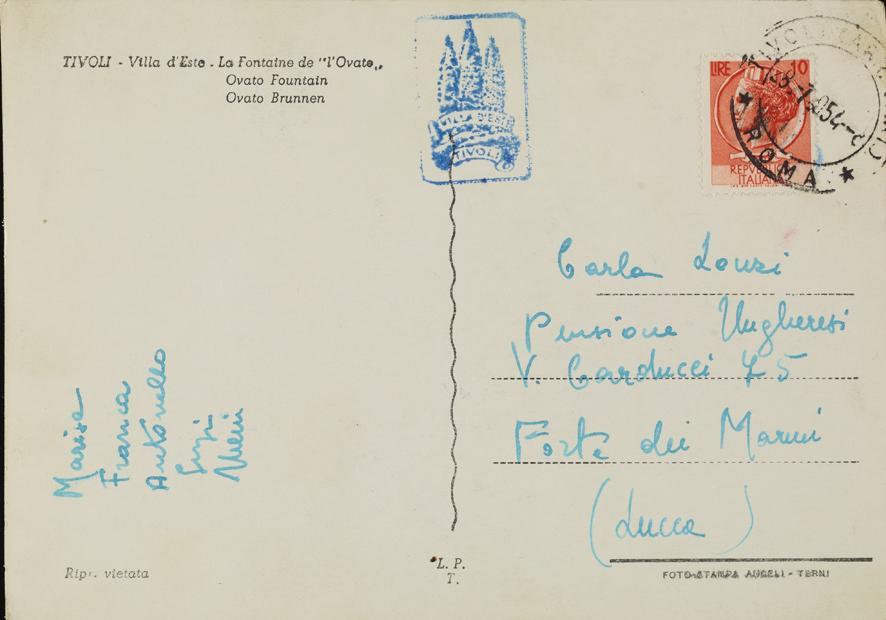 TIVOLI - Villa d'Este . La Fontaine de "l'Ovato"
Ovato Fountain
Ovato Brunnen
VILLA D'ESTE
TIVOLI
LIRE 10
REPVBBLICA
ITALIANA
ROMA
Carla Lonzi
Pensione Ungheresi
V. Carducci 75
Forte dei Marmi
(Lucca)
Marisa
Franca
Antonello
Ripr. vietata
L. P.
T.
FOTO-STAMPA ANGELI - TERNI